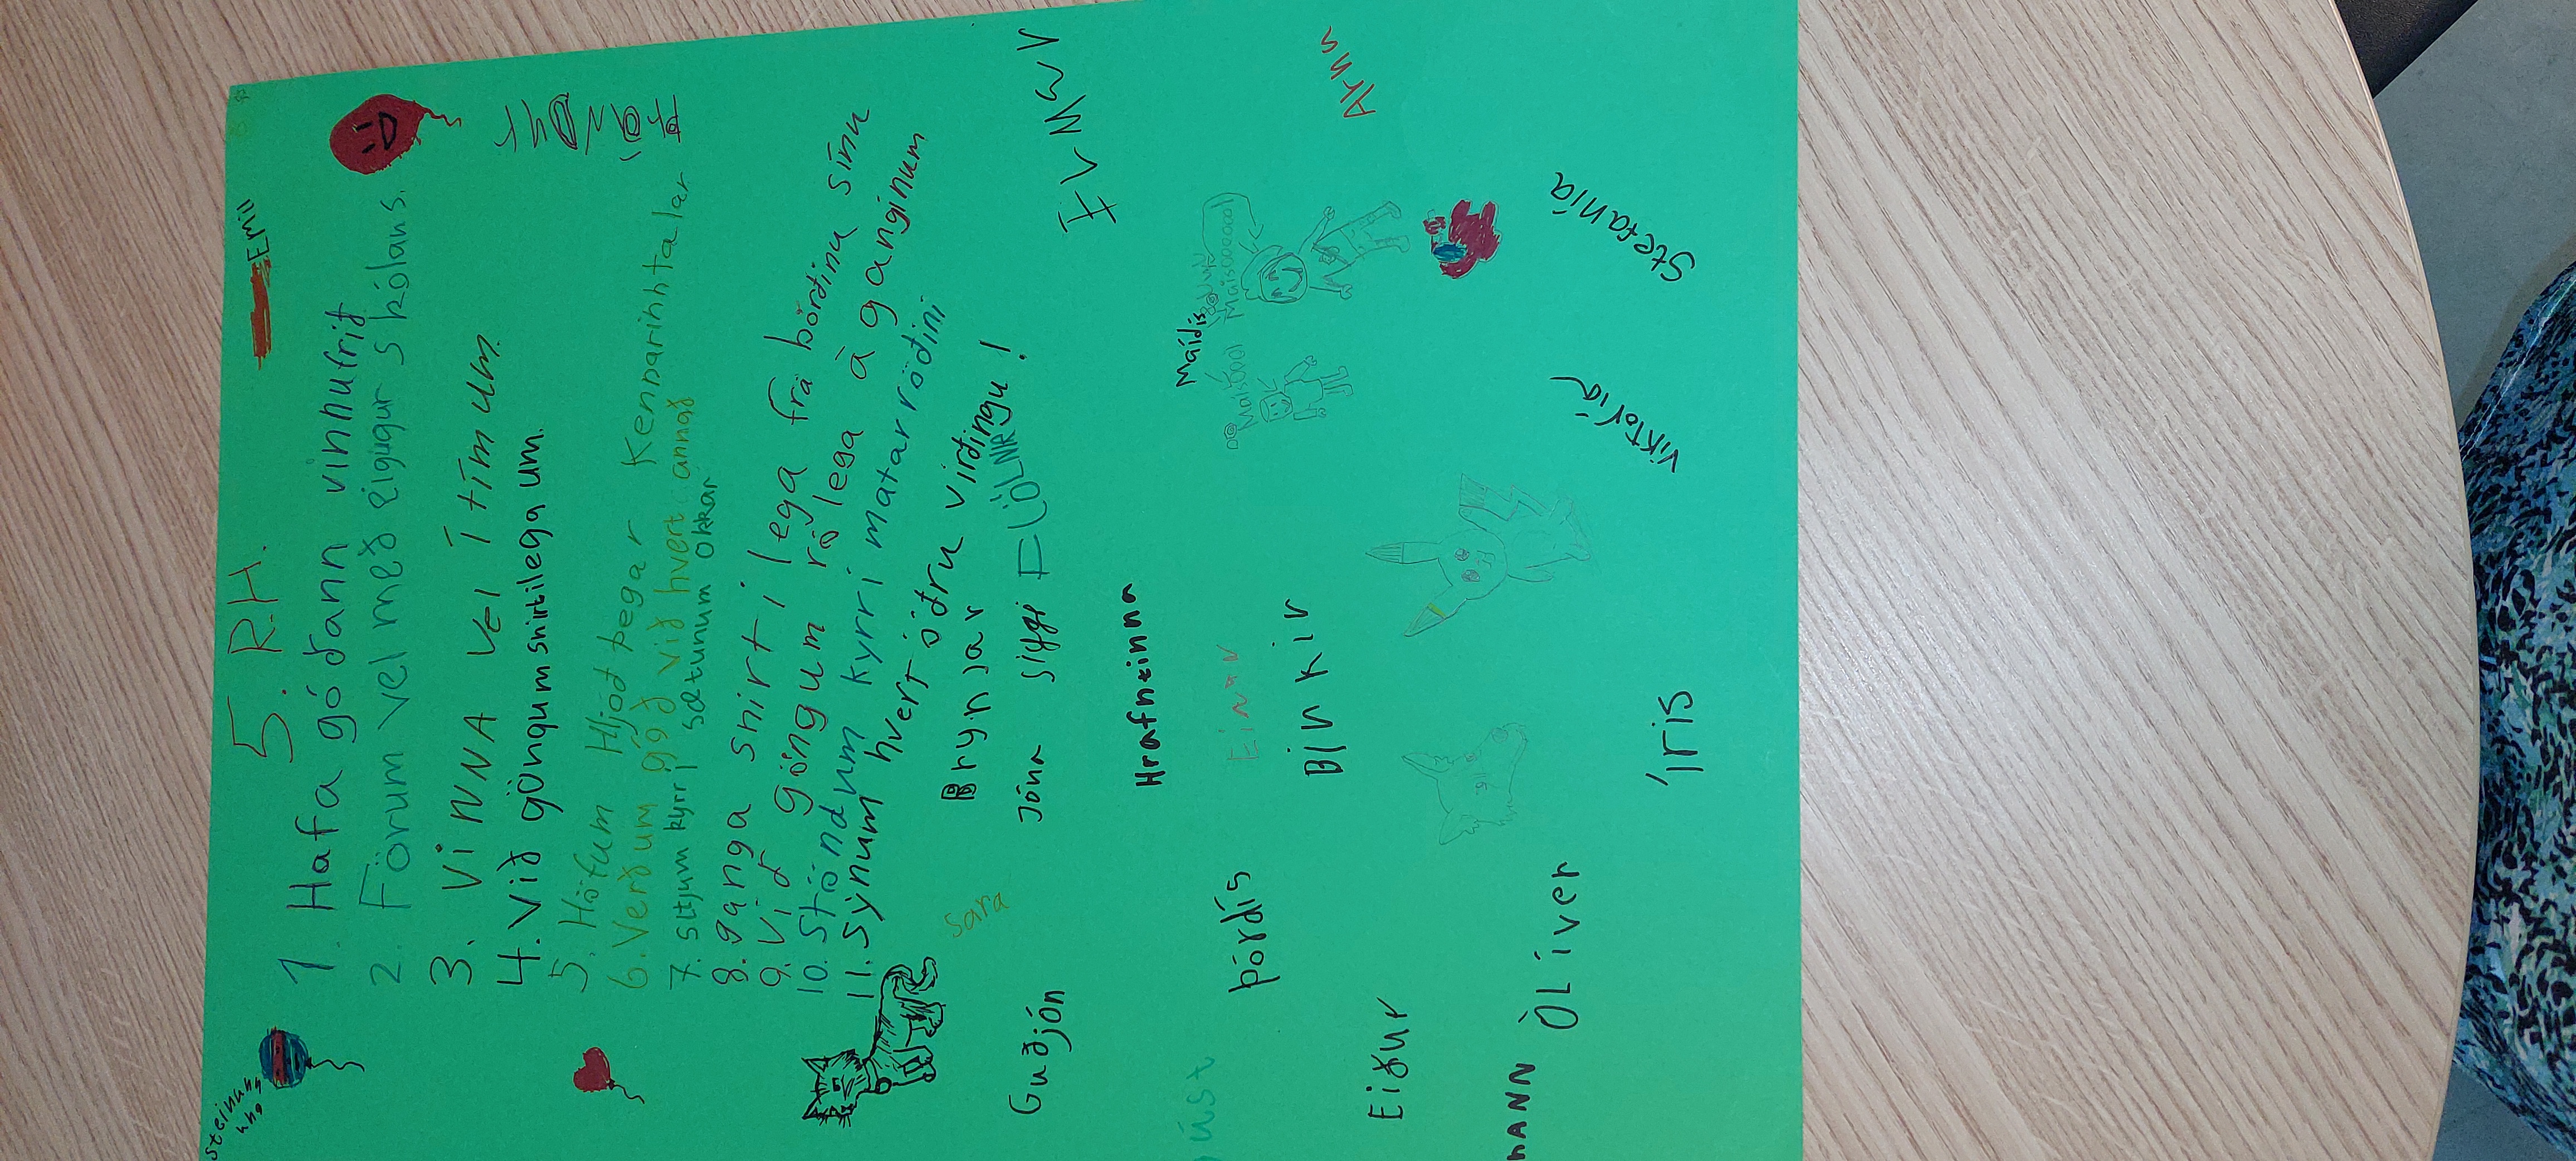 5. R.H.
Emill
Steinunn
una
1. Hafa góðann vinnufrið
2. Förum vel með eigugur skólans.
3. ViNNA vel í tímum.
4. Við göngum snirtilega um.
5. Höfum Hljóð þegar Kennarihhtalar
6. Verðum góð við hvert annað
7. sitjum kyrr í sætunum okkar
8. ganga snirtilega frá borðinu sínu
9. Við göngum rólega á ganginum
10. Stöndum kyrr í matarröðini
11. Sýnum hvert öðru virðingu!
Brynjar
Sara
Jóna
Siggi
FJÖLNIR
Guðjón
Hrafntinna
Maídís
Maísóool
Einar
Þórdís
Birkir
Arna
Eiður
Óliver
MANN
Viktoría
Stefanía
Íris